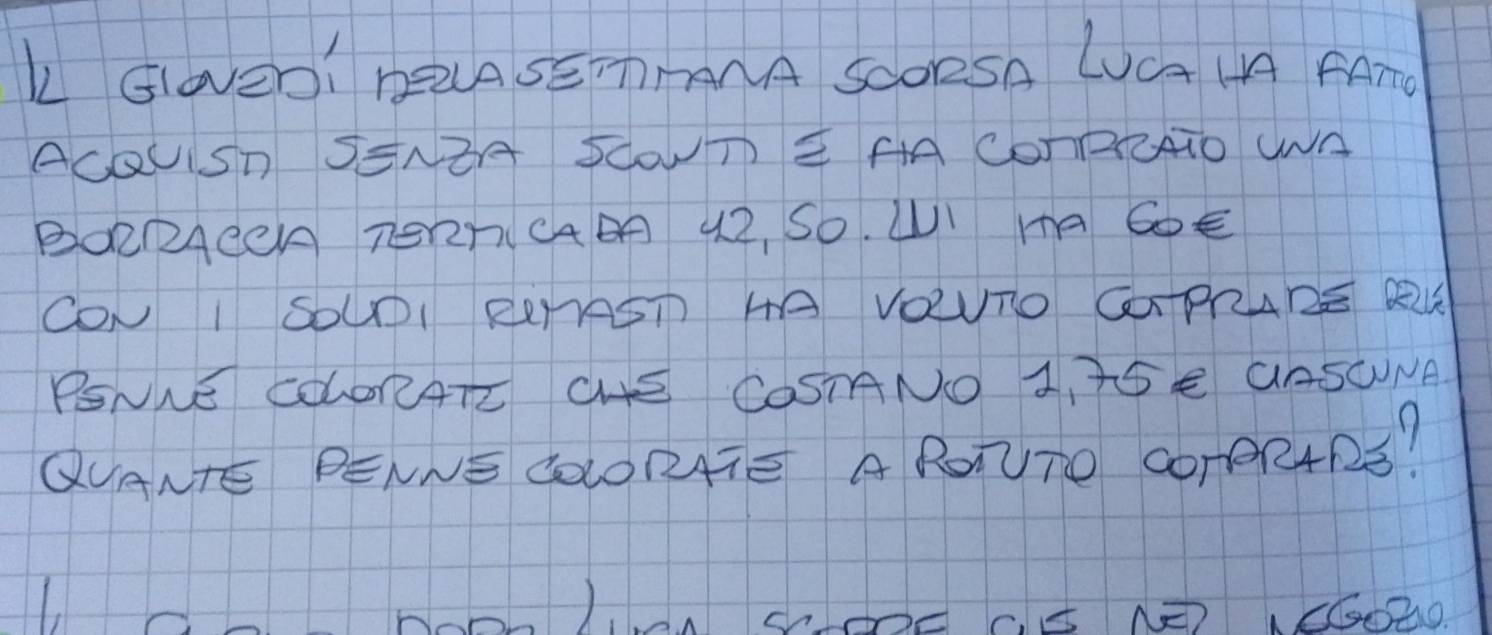 IL GIOVEDÌ DELLA SETTIMANA SCORSA LUCA HA FATTO
ACQUISTI SENZA SCONTI E HA COMPRATO UNA
BORRACCIA TERMICA DA 42,50. LUI HA 60€
CON I SOLDI RIMASTI HA VOLUTO COMPRARE DELLE
PENNE COLORATE CHE COSTANO 1,75€ CIASCUNA
QUANTE PENNE COLORATE A POTUTO COMPRARE?
IL DOPO LUCA SCOPRE CHE NEL NEGOZIO